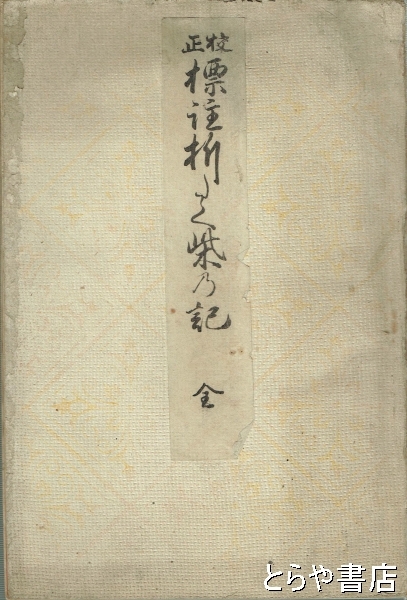 校正
標註折たく柴乃記
全
とらや書店